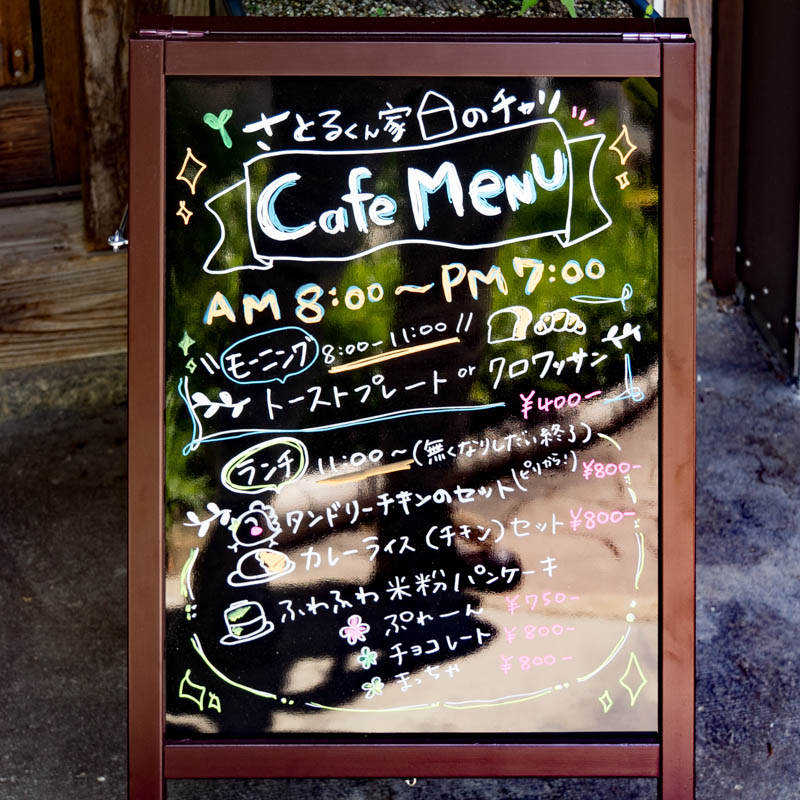 さとるくん家のチャリ
Cafe MENU
AM 8:00～PM 7:00
モーニング 8:00-11:00
トーストプレート or クロワッサン
¥400-
ランチ 11:00～(無くなりしだい終了)
タンドリーチキンのセット(ピリから!) ¥800-
カレーライス(チキン)セット ¥800-
ふわふわ米粉パンケーキ
ぷれーん ¥750-
チョコレート ¥800-
まっちゃ ¥800-